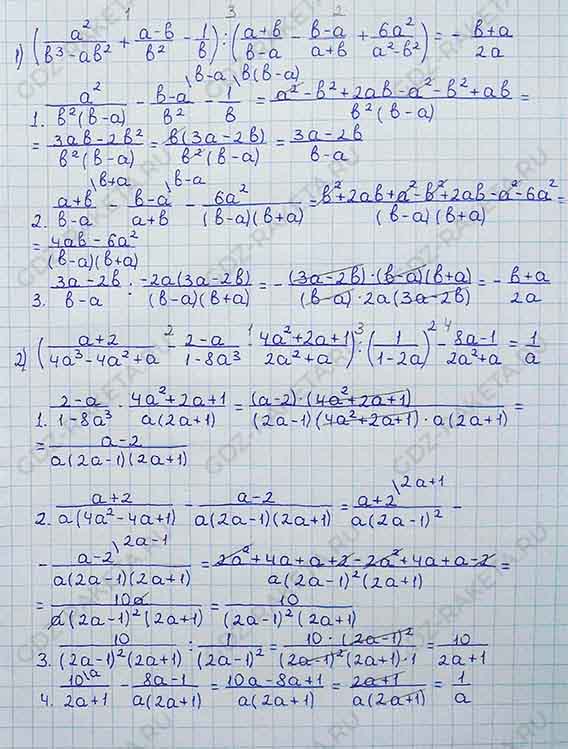 1 3 2
1) (a²/(b³-ab²) + (a-b)/b² - 1/b) : ((a+b)/(b-a) - (b-a)/(a+b) + 6a²/(a²-b²)) = - (b+a)/2a
1. a²/(b²(b-a)) - (b-a)/b² \b-a - 1/b \b(b-a) = (a²-b²+2ab-a²-b²+ab)/(b²(b-a)) =
= (3ab-2b²)/(b²(b-a)) = b(3a-2b)/(b²(b-a)) = (3a-2b)/(b-a)
2. (a+b)/(b-a) \b+a - (b-a)/(a+b) \b-a - 6a²/((b-a)(b+a)) = (b²+2ab+a²-b²+2ab-a²-6a²)/((b-a)(b+a)) =
= (4ab-6a²)/((b-a)(b+a))
3. (3a-2b)/(b-a) : -2a(3a-2b)/((b-a)(b+a)) = - (3a-2b)·(b-a)(b+a)/((b-a)·2a(3a-2b)) = - (b+a)/2a
2 1 3 4
2) ((a+2)/(4a³-4a²+a) - (2-a)/(1-8a³) · (4a²+2a+1)/(2a²+a)) : (1/(1-2a))² - (8a-1)/(2a²+a) = 1/a
1. (2-a)/(1-8a³) · (4a²+2a+1)/(a(2a+1)) = (a-2)·(4a²+2a+1)/((2a-1)(4a²+2a+1)·a(2a+1)) =
= (a-2)/(a(2a-1)(2a+1))
2. (a+2)/(a(4a²-4a+1)) - (a-2)/(a(2a-1)(2a+1)) = (a+2)/(a(2a-1)²) \2a+1 -
- (a-2)/(a(2a-1)(2a+1)) \2a-1 = (2a²+4a+a+2-2a²+4a+a-2)/(a(2a-1)²(2a+1)) =
= 10a/(a(2a-1)²(2a+1)) = 10/((2a-1)²(2a+1))
3. 10/((2a-1)²(2a+1)) : 1/(2a-1)² = 10·(2a-1)²/((2a-1)²(2a+1)·1) = 10/(2a+1)
4. 10/(2a+1) \a - (8a-1)/(a(2a+1)) = (10a-8a+1)/(a(2a+1)) = (2a+1)/(a(2a+1)) = 1/a
GDZ-RAKETA.RU